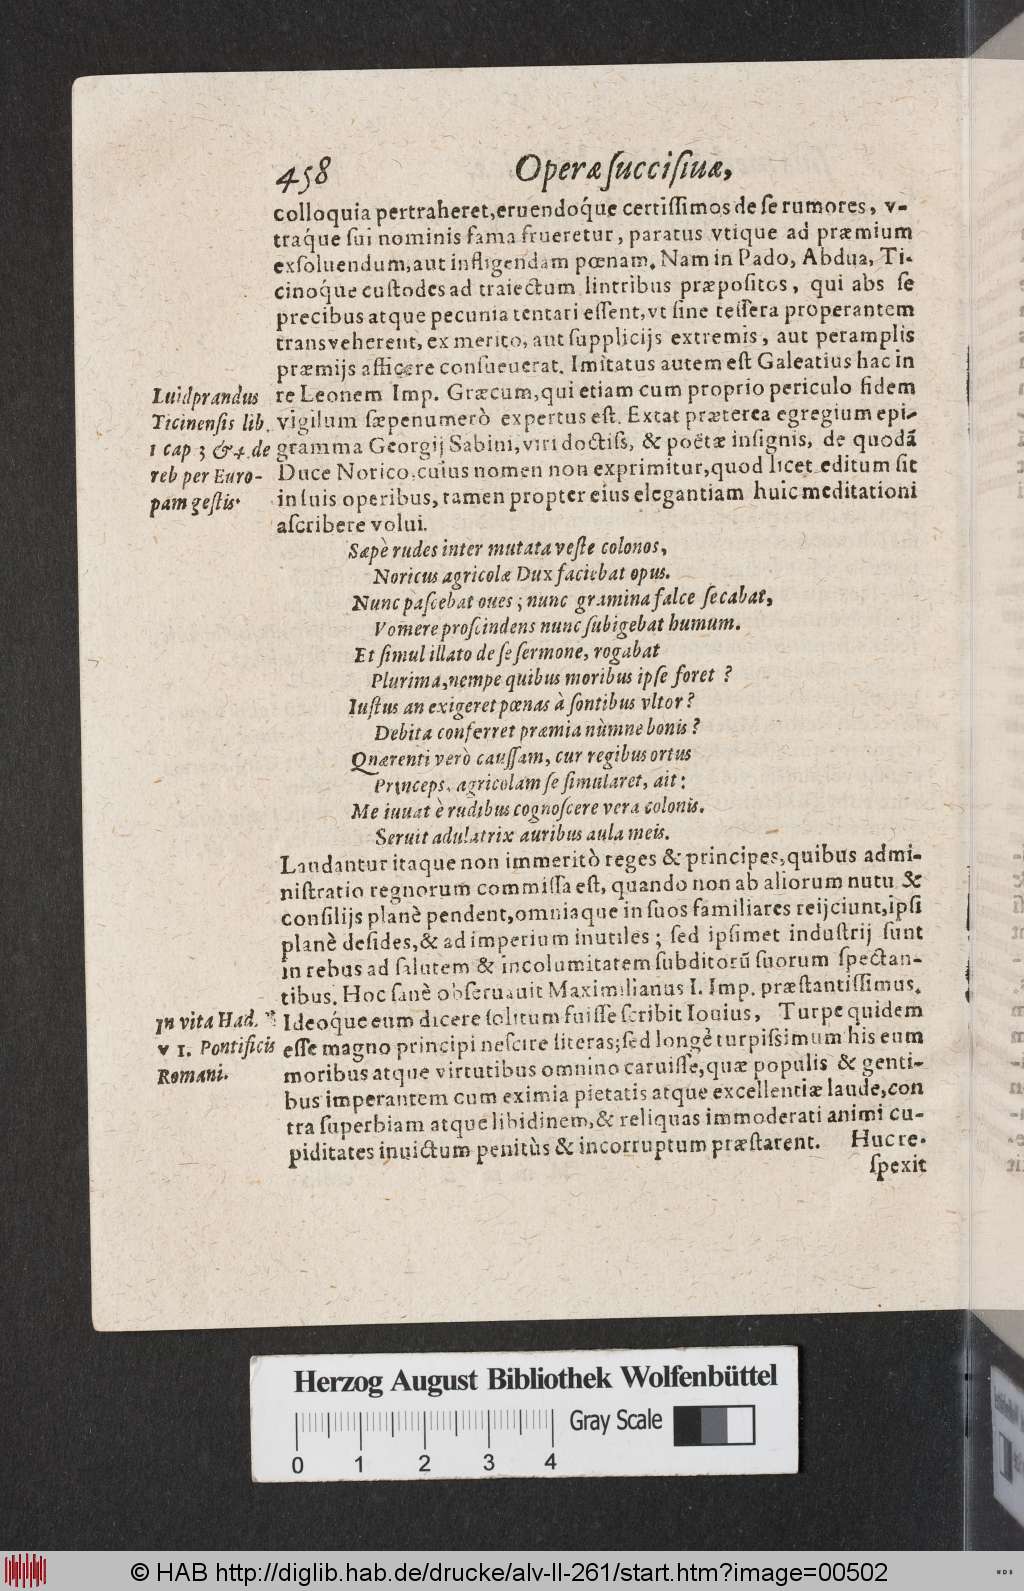 458
Operæ ſucciſiuæ,
colloquia pertraheret, eruendoq́ue certiſſimos de ſe rumores, v-
traq́ue ſui nominis fama frueretur, paratus vtique ad præmium
exſoluendum, aut infligendam pœnam. Nam in Pado, Abdua, Ti-
cinoq́ue cuſtodes ad traiectum lintribus præpoſitos, qui abs ſe
precibus atque pecunia tentari eſſent, vt ſine teſſera properantem
transveherent, ex merito, aut ſupplicijs extremis, aut peramplis
præmijs afficere conſueuerat. Imitatus autem eſt Galeatius hac in
re Leonem Imp. Græcum, qui etiam cum proprio periculo fidem
vigilum ſæpenumerò expertus eſt. Extat præterea egregium epi-
gramma Georgij Sabini, viri doctiſs, & poëtæ inſignis, de quodã
Duce Norico, cuius nomen non exprimitur, quod licet editum ſit
in ſuis operibus, tamen propter eius elegantiam huic meditationi
aſcribere volui.
Luidprandus
Ticinenſis lib.
1 cap 3 & 4. de
reb per Euro-
pam geſtis.
Sæpè rudes inter mutata veſte colonos,
Noricus agricolæ Dux faciebat opus.
Nunc paſcebat oues; nunc gramina falce ſecabat,
Vomere proſcindens nunc ſubigebat humum.
Et ſimul illato de ſe ſermone, rogabat
Plurima, nempe quibus moribus ipſe foret ?
Iuſtus an exigeret pœnas à ſontibus vltor ?
Debita conferret præmia nùmne bonis ?
Quærenti verò cauſſam, cur regibus ortus
Princeps, agricolam ſe ſimularet, ait:
Me iuuat è rudibus cognoſcere vera colonis.
Seruit adulatrix auribus aula meis.
Laudantur itaque non immeritò reges & principes, quibus admi-
niſtratio regnorum commiſſa eſt, quando non ab aliorum nutu &
conſilijs planè pendent, omniaque in ſuos familiares reijciunt, ipſi
planè deſides, & ad imperium inutiles; ſed ipſimet induſtrij ſunt
in rebus ad ſalutem & incolumitatem ſubditorũ ſuorum ſpectan-
tibus. Hoc ſanè obſeruauit Maximilianus I. Imp. præſtantiſſimus.
Ideoq́ue eum dicere ſolitum fuiſſe ſcribit Iouius, Turpe quidem
eſſe magno principi neſcire literas; ſed longè turpiſsimum his eum
moribus atque virtutibus omnino caruiſſe, quæ populis & genti-
bus imperantem cum eximia pietatis atque excellentiæ laude, con
tra ſuperbiam atque libidinem, & reliquas immoderati animi cu-
piditates inuictum penitùs & incorruptum præſtarent. Huc re-
ſpexit
In vita Had.
v 1. Pontificis
Romani.
Herzog August Bibliothek Wolfenbüttel
Gray Scale
0 1 2 3 4
© HAB http://diglib.hab.de/drucke/alv-ll-261/start.htm?image=00502